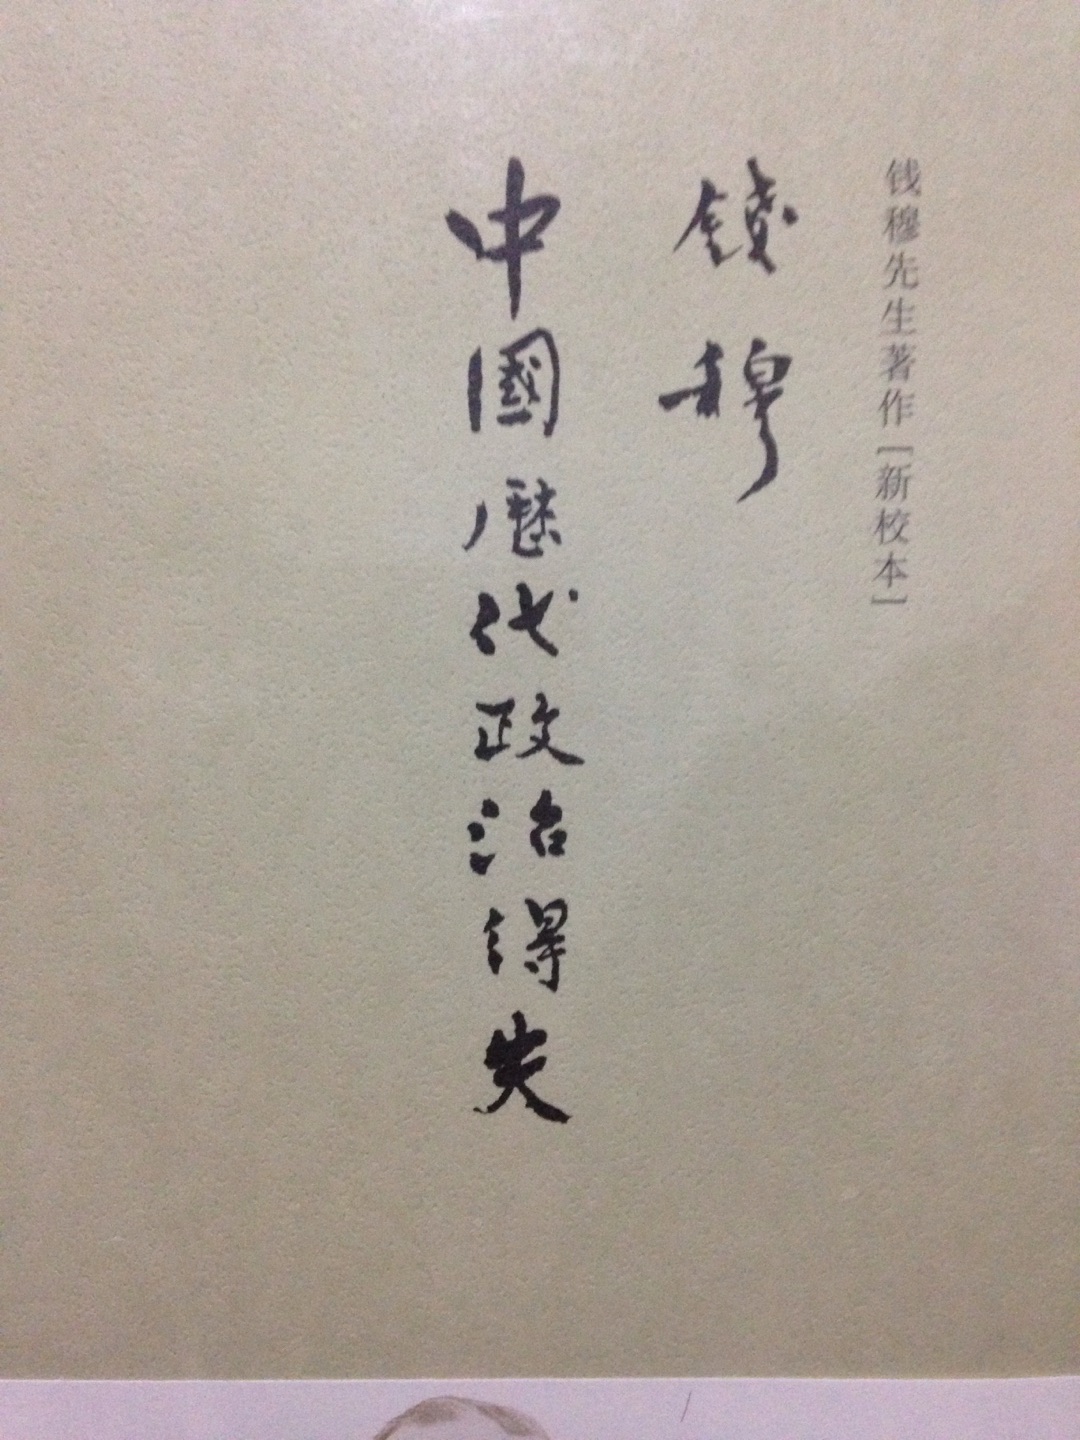 钱穆先生著作［新校本］
錢穆
中國歷代政治得失